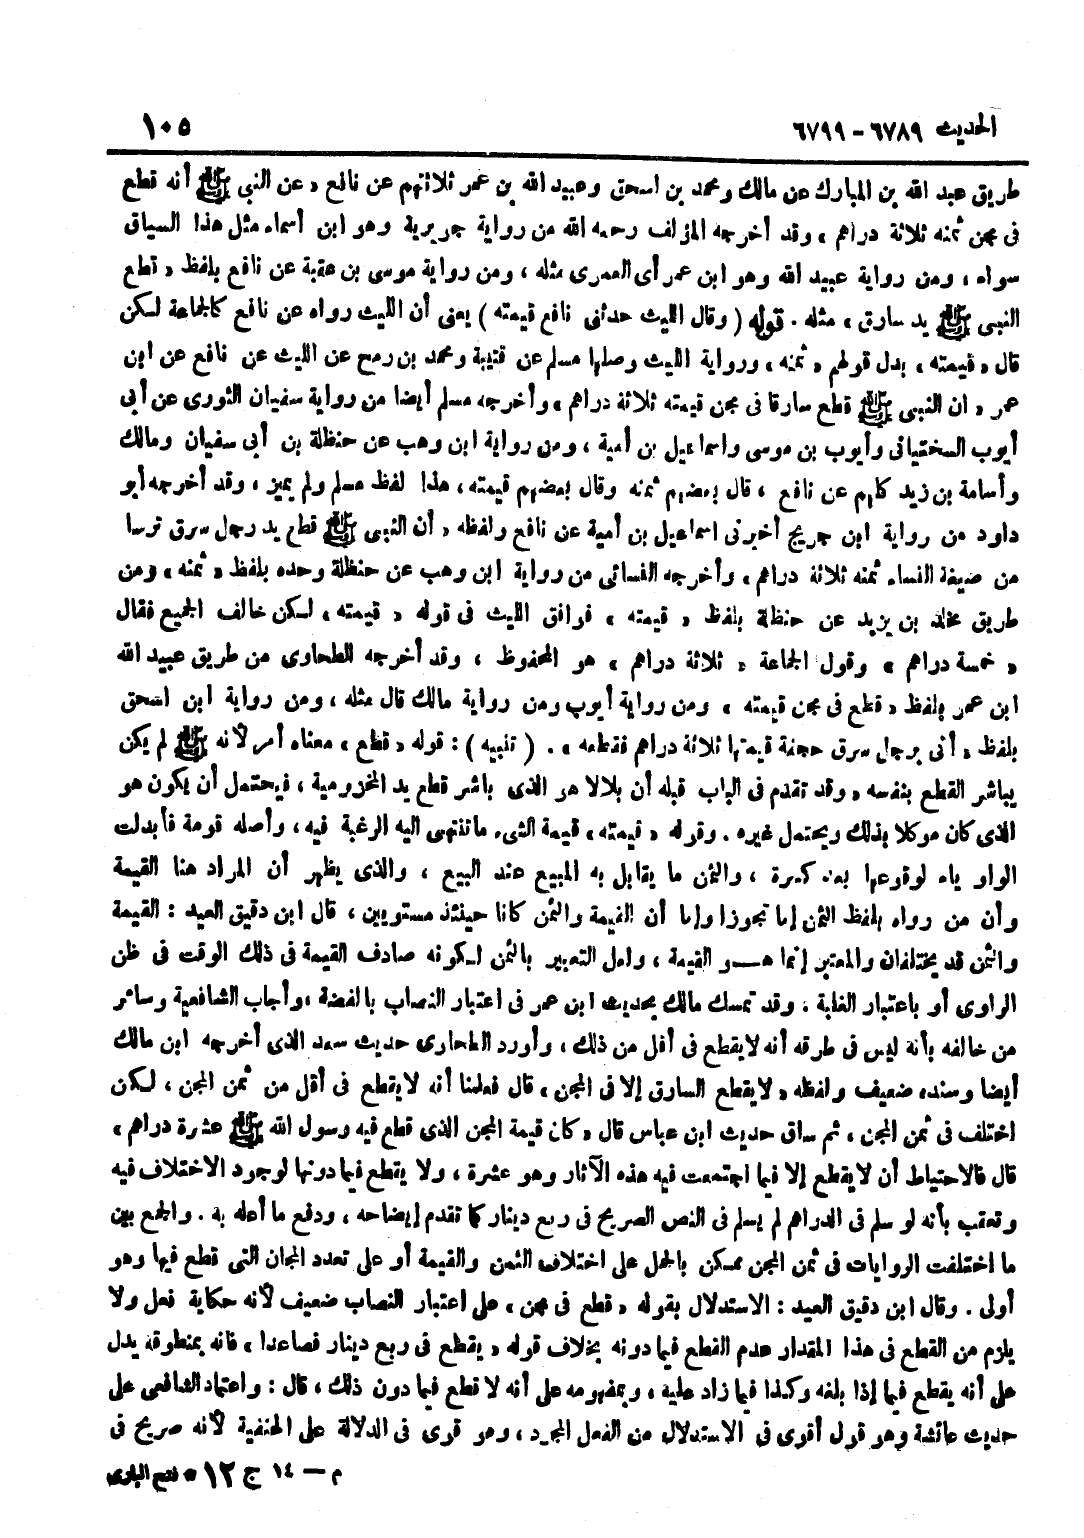 الحديث ٦٧٨٩ - ٦٧٩٩
١٠٥
طريق عبد الله بن المبارك عن مالك ومحمد بن اسحق وعبيد الله بن عمر ثلاثتهم عن نافع « عن النبي ﷺ أنه قطع
فى مجن ثمنه ثلاثة دراهم » وقد أخرجه المؤلف رحمه الله من رواية جويرية وهو ابن أسماء مثل هذا السياق
سواء ، ومن رواية عبيد الله وهو ابن عمر أى العمرى مثله ، ومن رواية موسى بن عقبة عن نافع بلفظ « قطع
النبى ﷺ يد سارق » مثله . قوله ( وقال الليث حدثنى نافع قيمته ) يعنى أن الليث رواه عن نافع كالجماعة لكن
قال « قيمته » بدل قولهم « ثمنه » ورواية الليث وصلها مسلم عن قتيبة ومحمد بن رمح عن الليث عن نافع عن ابن
عمر « ان النبى ﷺ قطع سارقا فى مجن قيمته ثلاثة دراهم » وأخرجه مسلم أيضا من رواية سفيان الثورى عن أبى
أيوب السختيانى وأيوب بن موسى واسماعيل بن أمية ، ومن رواية ابن وهب عن حنظلة بن أبى سفيان ومالك
وأسامة بن زيد كلهم عن نافع ، قال بعضهم ثمنه وقال بعضهم قيمته ، هذا لفظ مسلم ولم يميز ، وقد أخرجه أبو
داود من رواية ابن جريج أخبرنى اسماعيل بن أمية عن نافع ولفظه « أن النبى ﷺ قطع يد رجل سرق ترسا
من صيفة النساء ثمنه ثلاثة دراهم » وأخرجه النسائى من رواية ابن وهب عن حنظلة وحده بلفظ « ثمنه » ومن
طريق مخلد بن يزيد عن حنظلة بلفظ « قيمته » فوافق الليث فى قوله « قيمته » لكن خالف الجميع فقال
« خمسة دراهم » وقول الجماعة « ثلاثة دراهم » هو المحفوظ ، وقد أخرجه الطحاوى من طريق عبيد الله
ابن عمر بلفظ « قطع فى مجن قيمته » ومن رواية أيوب ومن رواية مالك قال مثله ، ومن رواية ابن اسحق
بلفظ « أتى برجل سرق حجفة قيمتها ثلاثة دراهم فقطعه » . ( تنبيه ) : قوله « قطع » معناه أمر لأنه ﷺ لم يكن
يباشر القطع بنفسه « وقد تقدم فى الباب قبله أن بلالا هو الذى باشر قطع يد المخزومية ، فيحتمل أن يكون هو
الذى كان موكلا بذلك ويحتمل غيره . وقوله « قيمته » قيمة الشىء ما تنتهى اليه الرغبة فيه ، وأصله قومة فأبدلت
الواو ياء لوقوعها بعد كسرة ، والثمن ما يقابل به المبيع عند البيع ، والذى يظهر أن المراد هنا القيمة
وأن من رواه بلفظ الثمن إما تجوزا وإما أن القيمة والثمن كانا حينئذ مستويين ، قال ابن دقيق العيد : القيمة
والثمن قد يختلفان والمعتبر إنما هــو القيمة ، ولعل التعبير بالثمن لكونه صادف القيمة فى ذلك الوقت فى ظن
الراوى أو باعتبار الغلبة . وقد تمسك مالك بحديث ابن عمر فى اعتبار النصاب بالفضة ، وأجاب الشافعية وسائر
من خالفه بأنه ليس فى طرقه أنه لا يقطع فى أقل من ذلك ، وأورد الطحاوى حديث سعد الذى أخرجه ابن مالك
أيضا وسنده ضعيف ولفظه « لا يقطع السارق إلا فى المجن » قال فعلمنا أنه لا يقطع فى أقل من ثمن المجن ، لكن
اختلف فى ثمن المجن ، ثم ساق حديث ابن عباس قال « كان قيمة المجن الذى قطع فيه رسول الله ﷺ عشرة دراهم »
قال فالاحتياط أن لا يقطع إلا فيما اجتمعت فيه هذه الآثار وهو عشرة ، ولا يقطع فيما دونها لوجود الاختلاف فيه
وتعقب بأنه لو سلم فى الدراهم لم يسلم فى النص الصريح فى ربع دينار كما تقدم إيضاحه ، ودفع ما أعله به . والجمع بين
ما اختلفت الروايات فى ثمن المجن ممكن بالحمل على اختلاف الثمن والقيمة أو على تعدد المجان التى قطع فيها وهو
أولى . وقال ابن دقيق العيد : الاستدلال بقوله « قطع فى مجن » على اعتبار النصاب ضعيف لأنه حكاية فعل ولا
يلزم من القطع فى هذا المقدار عدم القطع فيما دونه بخلاف قوله « يقطع فى ربع دينار فصاعدا » فانه بمنطوقه يدل
على أنه يقطع فيما إذا بلغه وكذا فيما زاد عليه ، وبمفهومه على أنه لا قطع فيما دون ذلك ، قال : واعتماد الشافعى على
حديث عائشة وهو قول أقوى فى الاستدلال من الفعل المجرد ، وهو قوى فى الدلالة على الحنفية لأنه صريح فى
م — ١٤ ج ١٢ * فتح البارى